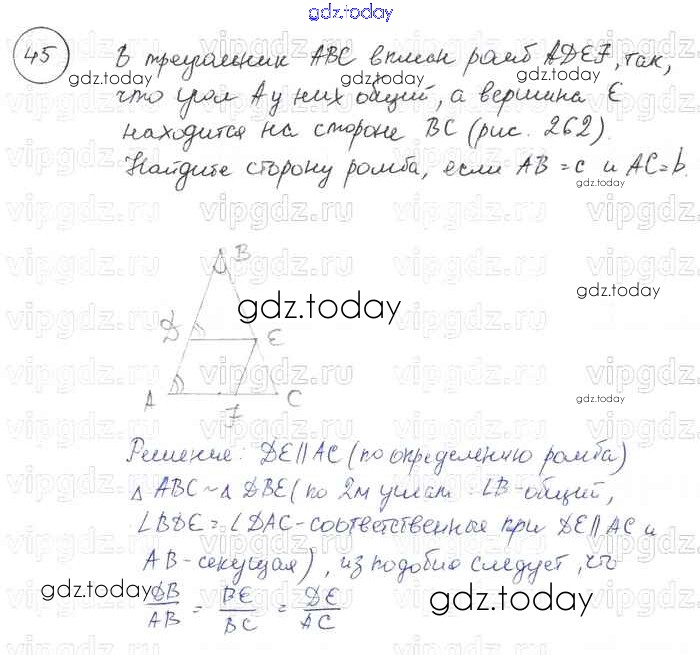 gdz.today
45 В треугольник ABC вписан ромб ADEF, так,
что угол A у них общий, а вершина E
находится на стороне BC (рис. 262).
Найдите сторону ромба, если AB = c и AC = b.
B
D E
A F C
Решение: DE||AC (по определению ромба)
△ ABC ~ △ DBE (по 2м углам: ∠B - общий,
∠BDE = ∠DAC - соответственные при DE||AC и
AB - секущая), из подобия следует, что
DB/AB = BE/BC = DE/AC
gdz.today
gdz.today
gdz.today
gdz.today
gdz.today
gdz.today
gdz.today
gdz.today
gdz.today
vipgdz.ru